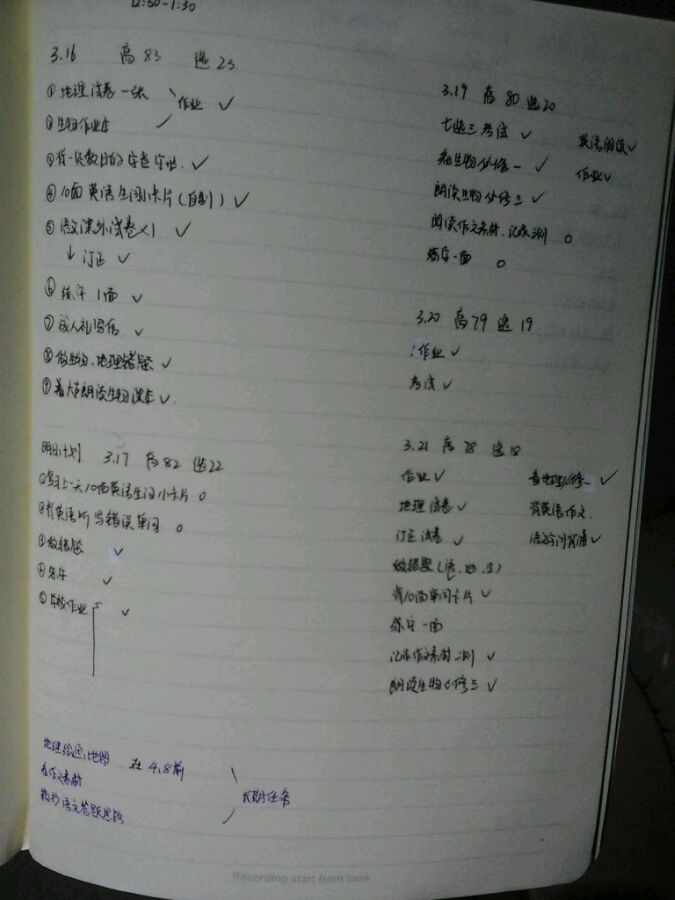 12:50-1:30
3.16 高83 选23
①地理试卷一张 作业 ✓
②生物作业本
④10面英语生词卡片(自制) ✓
⑤语文课外试卷×1 ✓
↓订正 ✓
⑥练字1面 ✓
⑦成人礼写信 ✓
⑧做生物、地理错题 ✓
⑨着大声朗读生物课本 ✓
明日计划 3.17 高82 选22
①复习上一天10面英语生词小卡片 ○
②背英语听写错误单词 ○
③做错题 ✓
④练字 ✓
⑤学校作业 ✓
地理绘图,地图 在4.8前
看作文素材
长期任务
语文答题思路
3.19 高80 选20
七选三考试 ✓ 英语朗读 ✓
看生物必修一 ✓ 作业 ✓
朗读生物必修三 ✓
阅读作文素材,记录2则 ○
练字一面 ○
3.20 高79 选19
作业 ✓
考试 ✓
3.21 高78 选18
作业 ✓ 看地理必修一 ✓
地理试卷 ✓ 背英语作文
订正试卷 ✓
做错题
背10面单词卡片 ✓
练字一面
记录作文素材二则 ✓
朗读生物必修三 ✓
Recording start from here